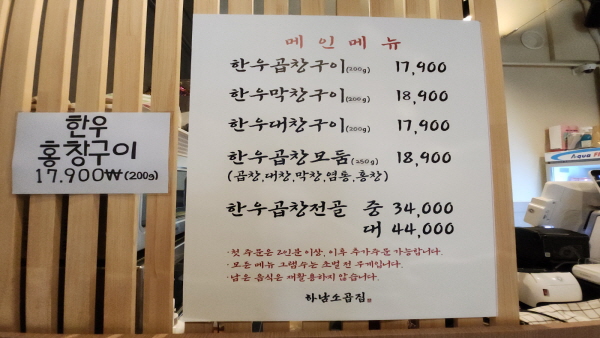 한우
홍창구이
17.900₩(200g)
메인메뉴
한우곱창구이(200g) 17,900
한우막창구이(200g) 18,900
한우대창구이(200g) 17,900
한우곱창모둠(250g) 18,900
(곱창.대창.막창.염통.홍창)
한우곱창전골 중 34,000
대 44,000
·첫 주문은 2인분 이상, 이후 추가주문 가능합니다.
·모든 메뉴 그램수는 초벌 전 무게입니다.
·남은 음식은 재활용하지 않습니다.
하남소곱집
Aqua